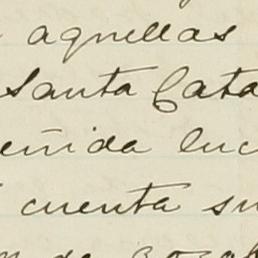 aquellas
Santa Cata
eñida luc
cuenta su